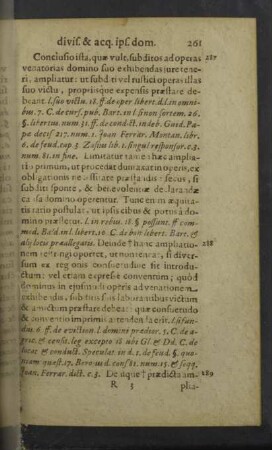 divis. & acq. ips. dom. 261
Conclusio ista, quæ vult, subditos ad operas 287
venatorias domino suo exhibendas jure tene-
ri, ampliatur: ut subditi vel rustici operas illas
suo victu, propriisque expensis præstare de-
beant. l. suo victu. 18. ff. de oper. libert. d. l. in omni-
bus. 7. C. de curs. pub. Bart. col. fin.
§. libertus. num 31. ff. de condict. indeb. Guid. Pa-
pæ decis 217. num. 1. Joan Ferrar. Montan. libr.
6. de feud. cap. 3. Zasius lib. 1. singul. responsor. c. 3.
num. 81. in fine. Limitatur tamen hæc amplia-
tio primùm, ut procedat duntaxat in operis, ex
obligationis necessitate præstandis: secus, si
subditi sponte, & benevolentiæ declarandæ
causa domino operentur. Tunc enim æquita-
tis ratio postulat, ut ipsis cibus & potus à do-
mino præstetur. l. in rebus. 18. §. possunt. ff. com-
mod. Bald. in l. libert. 10. C. de bon. libert. Bart. &
alij locis præallegatis. Deinde hanc ampliatio- 288
nem restringi oportet, ut non teneat, si diver-
sum ex regionis consuetudine sit introdu-
ctum: vel etiam expresse conventum; quòd
dominus in ejusmodi operis ad venationem
exhibendis, subditis suis laborantibus victum
& amictum præstare debeat: quâ consuetudo
& conventio imprimis attendenda erit.
dus. 6. ff. de eviction. l. domini prædior. 5. C. de a-
gric. & censit. leg. excepto 18 ubi Gl. & Dd. C. de
locat & conduct. Specular. in d. t. de feud. §. quo-
niam quæst. 17. num. 15. & seqq.
Joan. Ferrar. dict. c. 3. Denique; prædictam am- 289
R 3 plia-